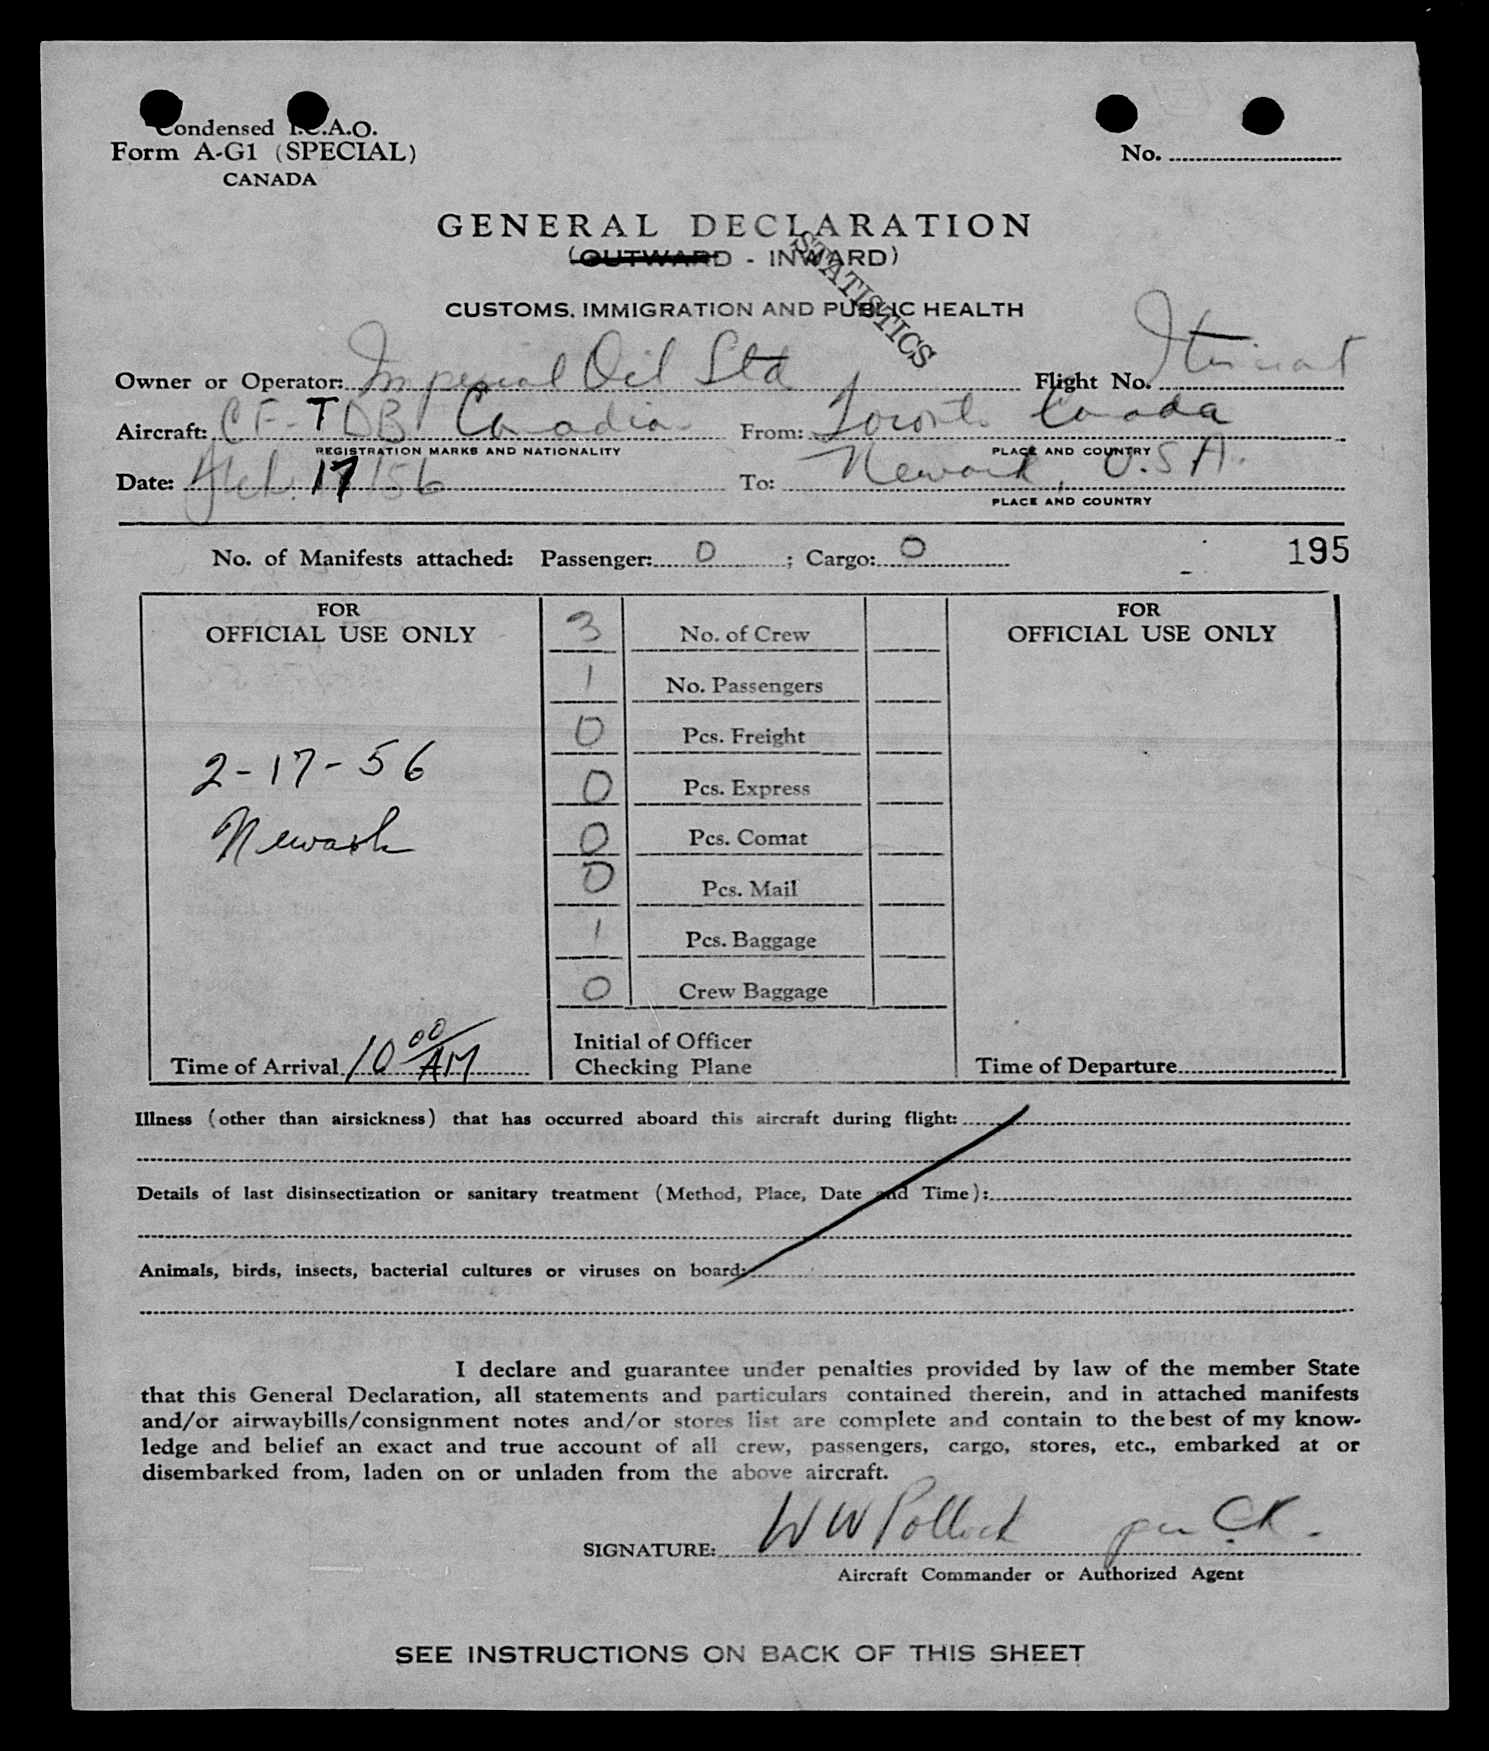 Condensed I.C.A.O.
Form A-G1 (SPECIAL)
CANADA
No.
GENERAL DECLARATION
(OUTWARD - INWARD)
STATISTICS
CUSTOMS, IMMIGRATION AND PUBLIC HEALTH
Owner or Operator: Imperial Oil Ltd Flight No. Itinerant
Aircraft: CF-TDB Canadian From: Toronto Canada
REGISTRATION MARKS AND NATIONALITY PLACE AND COUNTRY
Date: Feb. 17/56 To: Newark, U.S.A.
PLACE AND COUNTRY
No. of Manifests attached: Passenger: 0 ; Cargo: 0 195
FOR
OFFICIAL USE ONLY
3 No. of Crew
FOR
OFFICIAL USE ONLY
1 No. Passengers
0 Pcs. Freight
2-17-56
0 Pcs. Express
Newark
0 Pcs. Comat
0 Pcs. Mail
1 Pcs. Baggage
0 Crew Baggage
Time of Arrival 10 00 AM
Initial of Officer
Checking Plane
Time of Departure
Illness (other than airsickness) that has occurred aboard this aircraft during flight:
Details of last disinsectization or sanitary treatment (Method, Place, Date and Time):
Animals, birds, insects, bacterial cultures or viruses on board:
I declare and guarantee under penalties provided by law of the member State
that this General Declaration, all statements and particulars contained therein, and in attached manifests
and/or airwaybills/consignment notes and/or stores list are complete and contain to the best of my know-
ledge and belief an exact and true account of all crew, passengers, cargo, stores, etc., embarked at or
disembarked from, laden on or unladen from the above aircraft.
SIGNATURE: W W Pollock per CK.
Aircraft Commander or Authorized Agent
SEE INSTRUCTIONS ON BACK OF THIS SHEET